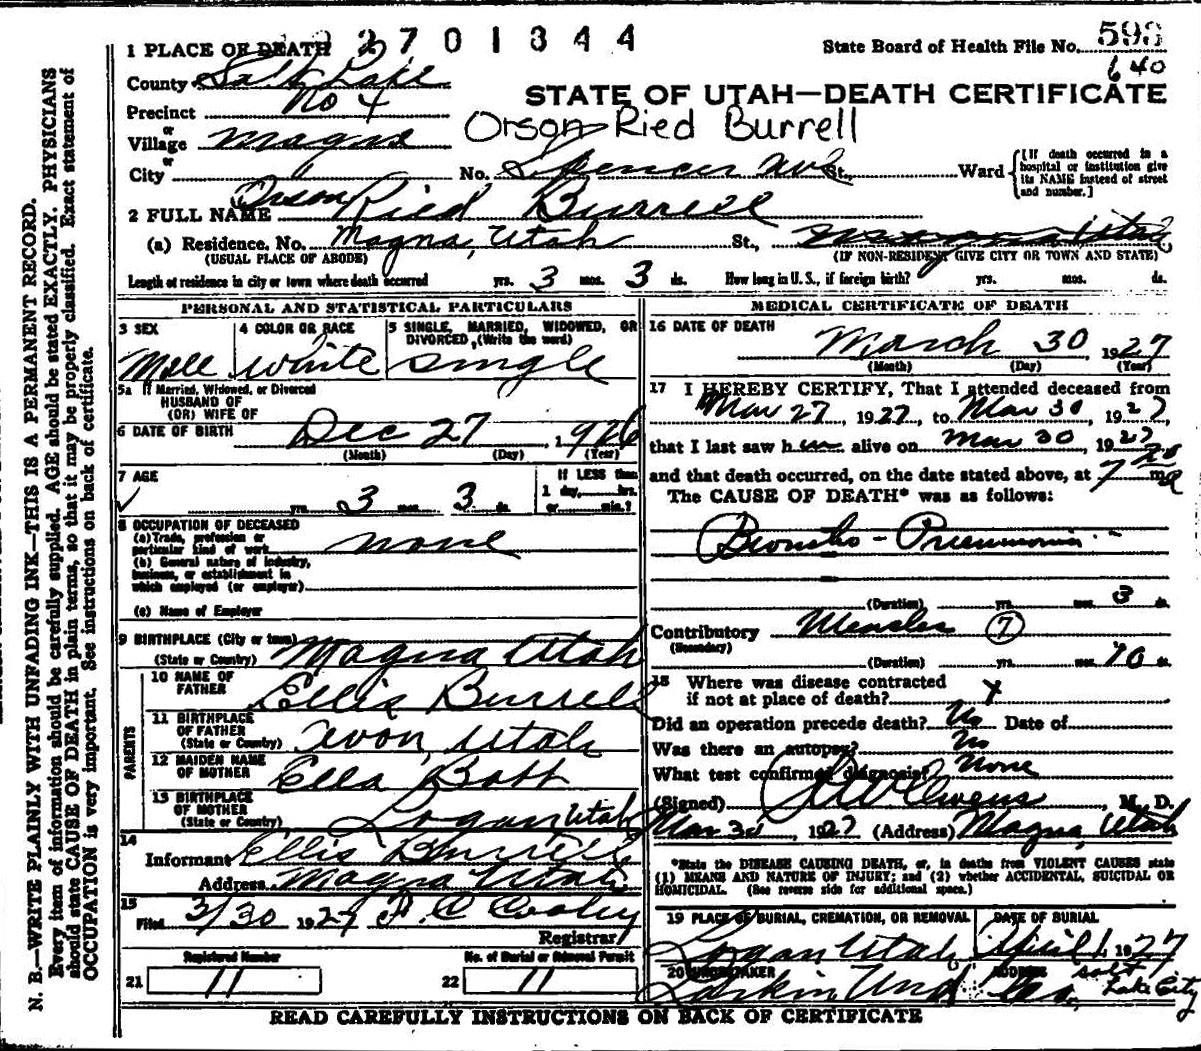 2701344
1 PLACE OF DEATH
State Board of Health File No. 593
640
County Salt Lake
STATE OF UTAH—DEATH CERTIFICATE
Precinct No 4
or
Village Magna
Orson Ried Burrell
or
City No. Spencer Ave St., Ward
[If death occurred in a hospital or institution give its NAME instead of street and number.]
2 FULL NAME Orson Ried Burrell
(a) Residence. No. Magna, Utah St., Magna Utah
(USUAL PLACE OF ABODE) (IF NON-RESIDENT GIVE CITY OR TOWN AND STATE)
Length of residence in city or town where death occurred yrs. 3 mos. 3 ds. How long in U. S., if foreign birth? yrs. mos. ds.
PERSONAL AND STATISTICAL PARTICULARS
3 SEX
Male
4 COLOR OR RACE
White
5 SINGLE, MARRIED, WIDOWED, OR
DIVORCED, (Write the word)
Single
5a If Married, Widowed, or Divorced
HUSBAND OF
(OR) WIFE OF
6 DATE OF BIRTH Dec 27, 1926
(Month) (Day) (Year)
7 AGE
yrs. 3 mos. 3 ds.
If LESS than
1 day, hrs.
or min.?
8 OCCUPATION OF DECEASED
(a) Trade, profession or
particular kind of work none
(b) General nature of industry,
business, or establishment in
which employed (or employer)
(c) Name of Employer
9 BIRTHPLACE (City or town)
(State or Country) Magna Utah
PARENTS
10 NAME OF
FATHER Ellis Burrell
11 BIRTHPLACE
OF FATHER
(State or Country) Avon, Utah
12 MAIDEN NAME
OF MOTHER Ella Bott
13 BIRTHPLACE
OF MOTHER
(State or Country) Logan Utah
14
Informant Ellis Burrell
Address Magna Utah
15
Filed 3/30 1927 P. C. Cooley
Registrar
Registered Number
21 11
No. of Burial or Removal Permit
22 11
MEDICAL CERTIFICATE OF DEATH
16 DATE OF DEATH
March 30 1927
(Month) (Day) (Year)
17 I HEREBY CERTIFY, That I attended deceased from
Mar 27, 1927, to Mar 30, 1927,
that I last saw him alive on Mar 30, 1927
and that death occurred, on the date stated above, at 7 m
The CAUSE OF DEATH* was as follows:
Broncho-Pneumonia
(Duration) yrs. mos. 3 ds.
Contributory Measles 7
(Secondary)
(Duration) yrs. mos. 10 ds.
18 Where was disease contracted
if not at place of death?
Did an operation precede death? No Date of
Was there an autopsy? No
What test confirmed diagnosis? None
(Signed) Owens, M. D.
Mar 30, 1927 (Address) Magna, Utah
*State the DISEASE CAUSING DEATH, or, in deaths from VIOLENT CAUSES state
(1) MEANS AND NATURE OF INJURY; and (2) whether ACCIDENTAL, SUICIDAL OR
HOMICIDAL. (See reverse side for additional space.)
19 PLACE OF BURIAL, CREMATION, OR REMOVAL
Logan Utah
DATE OF BURIAL
April 1, 1927
20 UNDERTAKER
Larkin Und Co.
ADDRESS
Salt
Lake City
READ CAREFULLY INSTRUCTIONS ON BACK OF CERTIFICATE
N. B.—WRITE PLAINLY WITH UNFADING INK—THIS IS A PERMANENT RECORD.
Every item of information should be carefully supplied. AGE should be stated EXACTLY. PHYSICIANS
should state CAUSE OF DEATH in plain terms, so that it may be properly classified. Exact statement of
OCCUPATION is very important. See instructions on back of certificate.